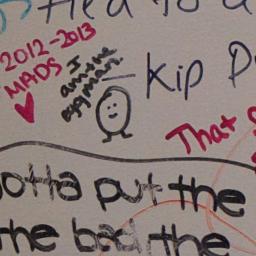 to a
2012-2013
MADS
I
am the
eggman.
— Kip
That
otta put the
the bad the